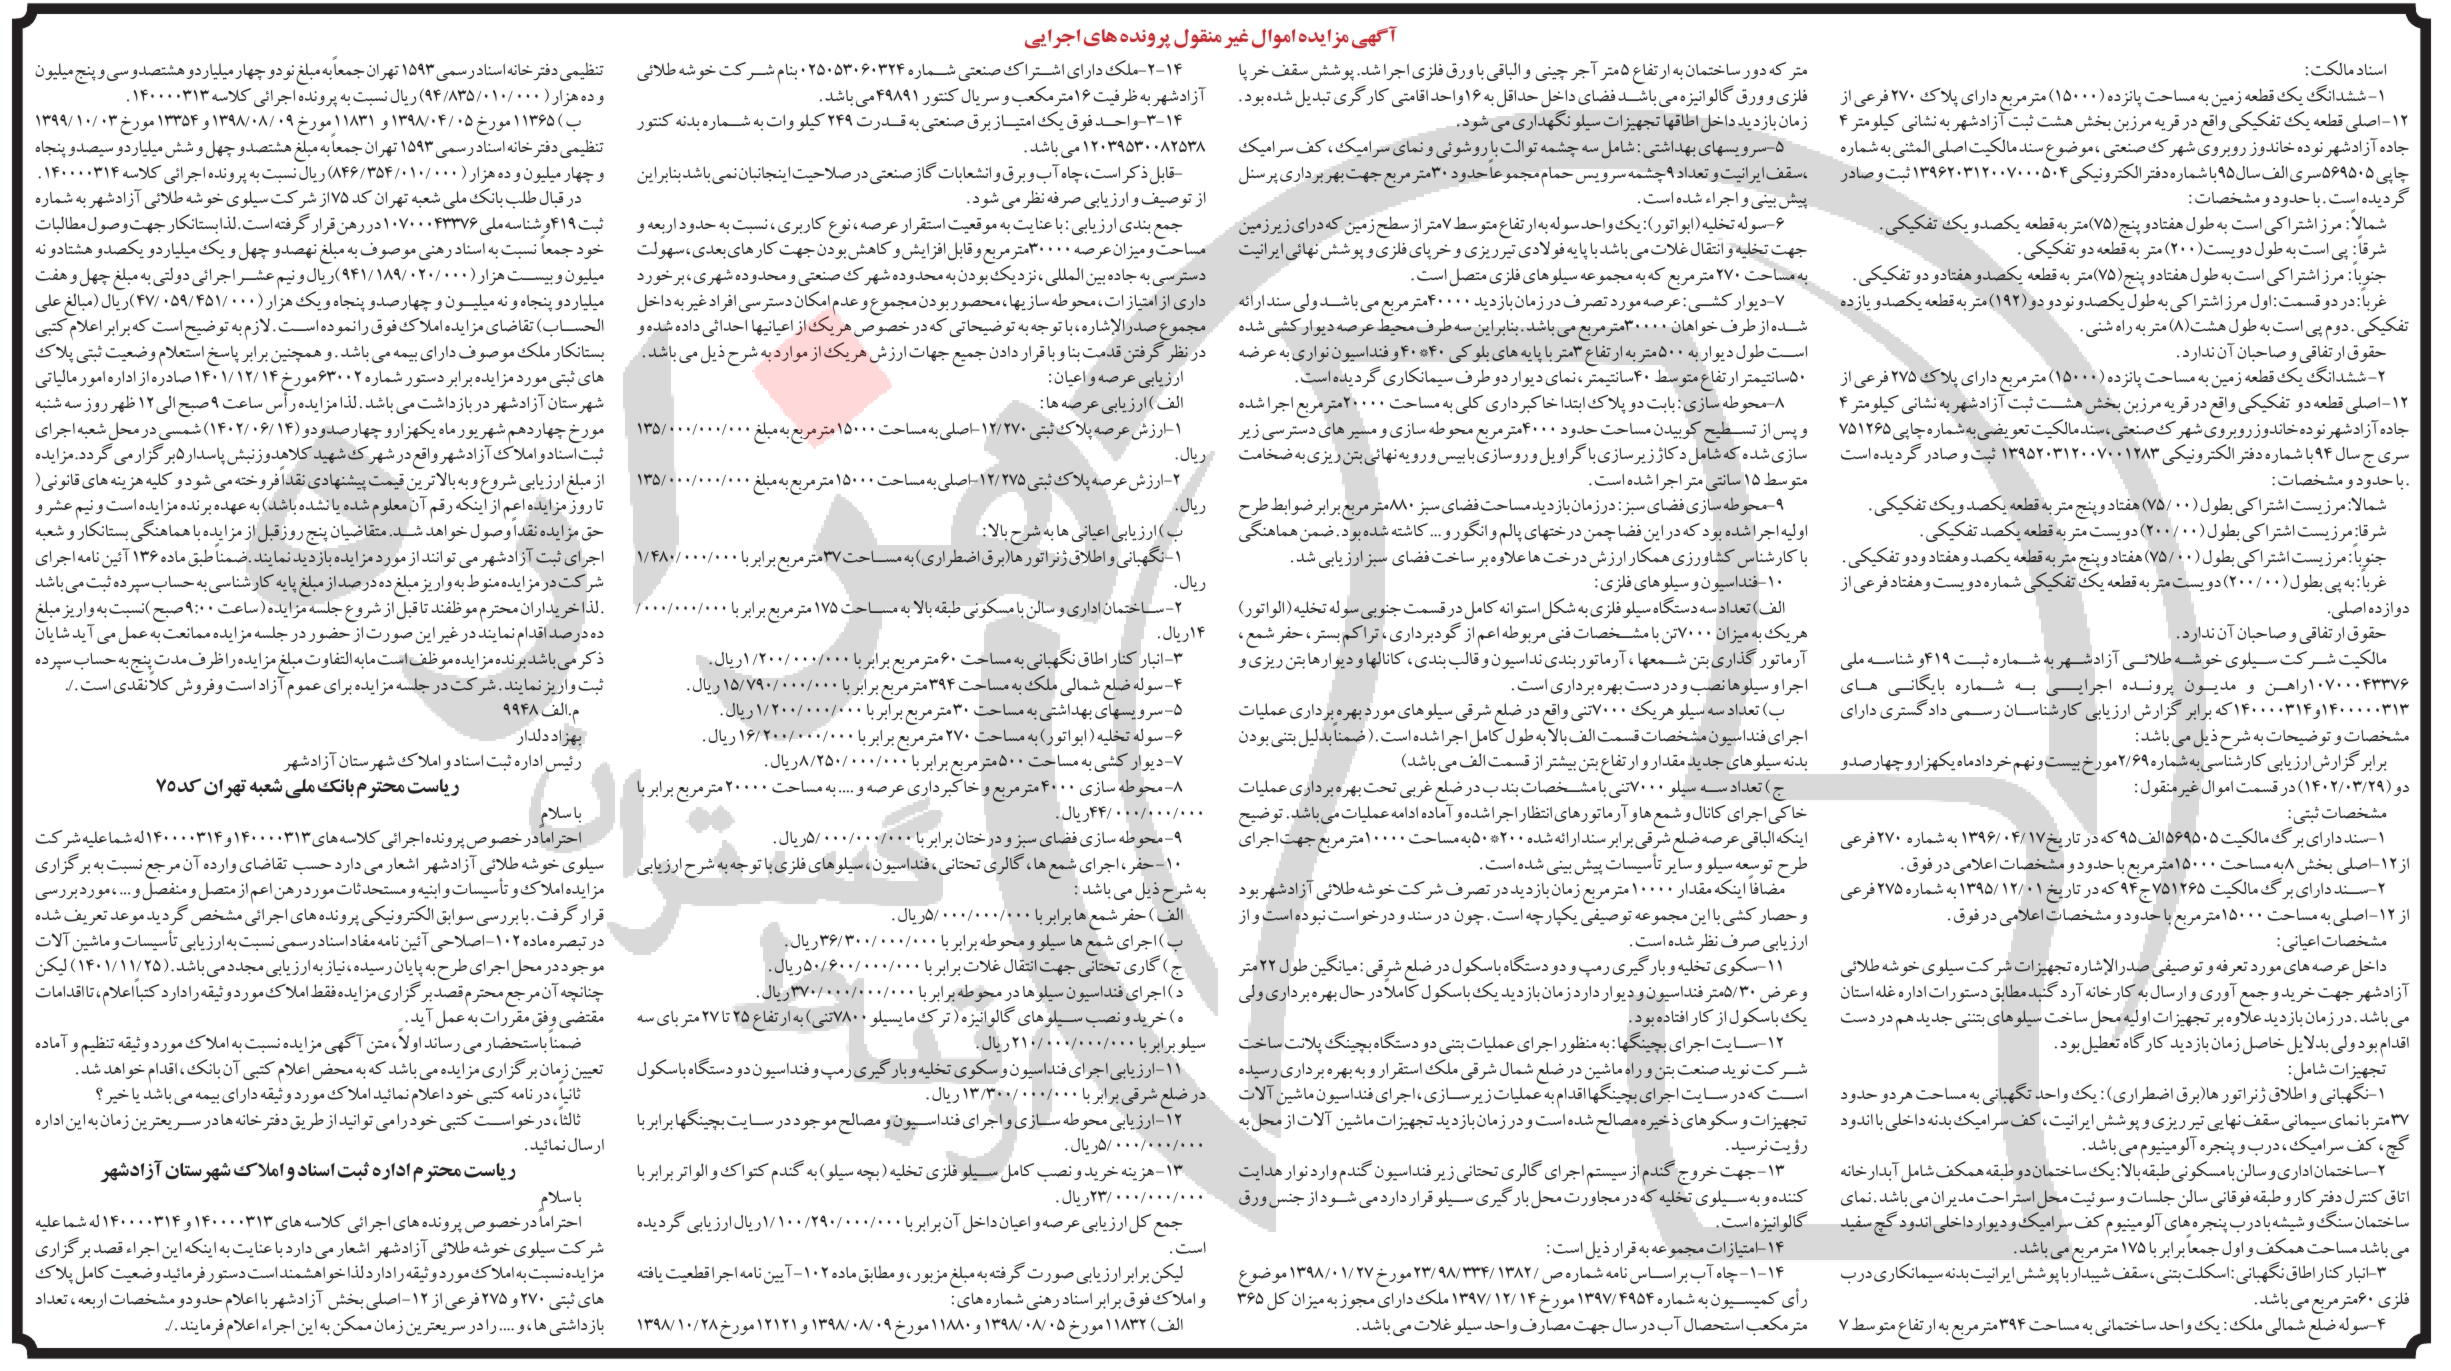 آگهی مزایده اموال غیر منقول پرونده های اجرایی
اسناد مالکت:
۱-ششدانگ یک قطعه زمین به مساحت پانزده (۱۵۰۰۰) مترمربع دارای پلاک ۲۷۰ فرعی از
۱۲-اصلی قطعه یک تفکیکی واقع در قریه مرزبن بخش هشت ثبت آزادشهر به نشانی کیلومتر ۴
جاده آزادشهر نوده خاندوز روبروی شهرک صنعتی ،موضوع سند مالکیت اصلی المثنی به شماره
چاپی ۵۶۹۵۰۵سری الف سال ۹۵با شماره دفتر الکترونیکی ۱۳۹۶۲۰۳۱۲۰۰۷۰۰۰۵۰۴ ثبت و صادر
گردیده است .با حدود و مشخصات:
شمالاً: مرز اشتراکی است به طول هفتادو پنج(۷۵)متر به قطعه یکصدو یک تفکیکی.
شرقاً: پی است به طول دویست(۲۰۰) متر به قطعه دو تفکیکی.
جنوباً: مرز اشتراکی است به طول هفتادو پنج(۷۵)متر به قطعه یکصدو هفتادو دو تفکیکی.
غرباً: در دو قسمت:اول مرز اشتراکی به طول یکصدو نودو دو(۱۹۲) متر به قطعه یکصدو یازده
تفکیکی .دوم پی است به طول هشت(۸) متر به راه شنی.
حقوق ارتفاقی و صاحبان آن ندارد.
۲-ششدانگ یک قطعه زمین به مساحت پانزده (۱۵۰۰۰) مترمربع دارای پلاک ۲۷۵ فرعی از
۱۲-اصلی قطعه دو تفکیکی واقع در قریه مرزبن بخش هشت ثبت آزادشهر به نشانی کیلومتر ۴
جاده آزادشهر نوده خاندوز روبروی شهرک صنعتی،سند مالکیت تعویضی به شماره چاپی ۷۵۱۲۶۵
سری ج سال ۹۴ با شماره دفتر الکترونیکی ۱۳۹۵۲۰۳۱۲۰۰۷۰۰۱۲۸۳ ثبت و صادر گردیده است
.با حدود و مشخصات:
شمالا: مرزیست اشتراکی بطول (۷۵/۰۰) هفتاد و پنج متر به قطعه یکصد و یک تفکیکی.
شرقا: مرزیست اشتراکی بطول (۲۰۰/۰۰) دویست متر به قطعه یکصد تفکیکی.
جنوباً: مرزیست اشتراکی بطول (۷۵/۰۰)هفتاد و پنج متر به قطعه یکصد و هفتاد و دو تفکیکی.
غرباً: به پی بطول (۲۰۰/۰۰) دویست متر به قطعه یک تفکیکی شماره دویست و هفتاد فرعی از
دوازده اصلی.
حقوق ارتفاقی و صاحبان آن ندارد.
مالکیت شرکت سیلوی خوشه طلائی آزادشهر به شماره ثبت ۴۱۹و شناسه ملی
۱۰۷۰۰۰۴۳۳۷۶راهن و مدیون پرونده اجرایی به شماره بایگانی های
۱۴۰۰۰۰۳۱۳و۱۴۰۰۰۰۳۱۴که برابر گزارش ارزیابی کارشناسان رسمی دادگستری دارای
مشخصات و توضیحات به شرح ذیل می باشد:
برابر گزارش ارزیابی کارشناسی به شماره ۲/۶۹مورخ بیست و نهم خردادماه یکهزارو چهارصدو
دو (۱۴۰۲/۰۳/۲۹) در قسمت اموال غیر منقول:
مشخصات ثبتی:
۱-سند دارای برگ مالکیت ۵۶۹۵۰۵الف۹۵ که در تاریخ ۱۳۹۶/۰۴/۱۷ به شماره ۲۷۰فرعی
از ۱۲-اصلی بخش ۸به مساحت ۱۵۰۰۰مترمربع با حدود و مشخصات اعلامی در فوق.
۲-سند دارای برگ مالکیت ۷۵۱۲۶۵ج۹۴ که در تاریخ ۱۳۹۵/۱۲/۰۱ به شماره ۲۷۵فرعی
از ۱۲-اصلی به مساحت ۱۵۰۰۰مترمربع با حدود و مشخصات اعلامی در فوق.
مشخصات اعیانی:
داخل عرصه های مورد تعرفه و توصیفی صدرالإشاره تجهیزات شرکت سیلوی خوشه طلائی
آزادشهر جهت خرید و جمع آوری و ارسال به کارخانه آرد گنبد مطابق دستورات اداره غله استان
می باشد.در زمان بازدید علاوه بر تجهیزات اولیه محل ساخت سیلوهای بتنی جدید هم در دست
اقدام بود ولی بدلایل خاصل زمان بازدید کارگاه تعطیل بود.
تجهیزات شامل:
۱-نگهبانی و اطلاق ژنراتور ها(برق اضطراری): یک واحد نگهبانی به مساحت هر دو حدود
۳۷متر با نمای سیمانی سقف نهایی تیرریزی و پوشش ایرانیت، کف سرامیک بدنه داخلی با اندود
گچ، کف سرامیک، درب و پنجره آلومینیوم می باشد.
۲-ساختمان اداری و سالن با مسکونی طبقه بالا: یک ساختمان دو طبقه همکف شامل آبدارخانه
اتاق کنترل دفتر کار و طبقه فوقانی سالن جلسات و سوئیت محل استراحت مدیران می باشد.نمای
ساختمان سنگ و شیشه با درب پنجره های آلومینیوم کف سرامیک و دیوار داخلی اندود گچ سفید
می باشد مساحت همکف و اول جمعاً برابر با ۱۷۵ مترمربع می باشد.
۳-انبار کنار اطاق نگهبانی: اسکلت بتنی، سقف شیبدار با پوشش ایرانیت بدنه سیمانکاری درب
فلزی ۶۰مترمربع می باشد.
۴-سوله ضلع شمالی ملک: یک واحد ساختمانی به مساحت ۳۹۴مترمربع به ارتفاع متوسط ۷
متر که دور ساختمان به ارتفاع ۵متر آجرچینی و الباقی با ورق فلزی اجرا شد. پوشش سقف خرپا
فلزی و ورق گالوانیزه می باشد فضای داخل حداقل به ۱۶واحد اقامتی کارگری تبدیل شده بود.
زمان بازدید داخل اطاقها تجهیزات سیلو نگهداری می شود.
۵-سرویسهای بهداشتی: شامل سه چشمه توالت با روشوئی و نمای سرامیک، کف سرامیک
،سقف ایرانیت و تعداد ۹چشمه سرویس حمام مجموعاً حدود ۳۰مترمربع جهت بهربرداری پرسنل
پیش بینی و اجراء شده است.
۶-سوله تخلیه (ابواتور): یک واحد سوله به ارتفاع متوسط ۷متر از سطح زمین که درای زیرزمین
جهت تخلیه و انتقال غلات می باشد با پایه فولادی تیرریزی و خرپای فلزی و پوشش نهائی ایرانیت
به مساحت ۲۷۰ مترمربع که به مجموعه سیلوهای فلزی متصل است.
۷-دیوار کشی: عرصه مورد تصرف در زمان بازدید ۴۰۰۰۰مترمربع می باشد ولی سند ارائه
شده از طرف خواهان ۳۰۰۰۰مترمربع می باشد. بنابراین سه طرف محیط عرصه دیوار کشی شده
است طول دیوار به ۵۰۰متر به ارتفاع ۳متر با پایه های بلوکی ۴۰*۴۰ و فنداسیون نواری به عرضه
۵۰سانتیمتر ارتفاع متوسط ۴۰سانتیمتر، نمای دیوار دو طرف سیمانکاری گردیده است.
۸-محوطه سازی: بابت دو پلاک ابتدا خاکبرداری کلی به مساحت ۲۰۰۰۰مترمربع اجرا شده
و پس از تسطیح کوبیدن مساحت حدود ۴۰۰۰مترمربع محوطه سازی و مسیر های دسترسی زیر
سازی شده که شامل دکاژ زیرسازی با گراویل و روسازی با بیس و رویه نهائی بتن ریزی به ضخامت
متوسط ۱۵ سانتی متر اجرا شده است.
۹-محوطه سازی فضای سبز: در زمان بازدید مساحت فضای سبز ۸۸۰متر مربع برابر ضوابط طرح
اولیه اجرا شده بود که در این فضا چمن درختهای پالم و انگور و... کاشته شده بود. ضمن هماهنگی
با کارشناس کشاورزی همکار ارزش درخت ها علاوه بر ساخت فضای سبز ارزیابی شد.
۱۰-فنداسیون و سیلوهای فلزی:
الف) تعداد سه دستگاه سیلو فلزی به شکل استوانه کامل در قسمت جنوبی سوله تخلیه (الواتور)
هر یک به میزان ۷۰۰۰تن با مشخصات فنی مربوطه اعم از گودبرداری، تراکم بستر، حفر شمع،
آرماتور گذاری بتن شمعها، آرماتور بندی نداسیون و قالب بندی، کانالها و دیوارها بتن ریزی و
اجرا و سیلوها نصب و در دست بهره برداری است.
ب) تعداد سه سیلو هر یک ۷۰۰۰تنی واقع در ضلع شرقی سیلوهای مورد بهره برداری عملیات
اجرای فنداسیون مشخصات قسمت الف بالا به طول کامل اجرا شده است.(ضمناً بدلیل بتنی بودن
بدنه سیلوهای جدید مقدار و ارتفاع بتن بیشتر از قسمت الف می باشد)
ج) تعداد سه سیلو ۷۰۰۰تنی با مشخصات بند ب در ضلع غربی تحت بهره برداری عملیات
خاکی اجرای کانال و شمع ها و آرماتورهای انتظار اجرا شده و آماده ادامه عملیات می باشد. توضیح
اینکه الباقی عرصه ضلع شرقی برابر سند ارائه شده ۲۰۰*۵۰به مساحت ۱۰۰۰۰مترمربع جهت اجرای
طرح توسعه سیلو و سایر تأسیسات پیش بینی شده است.
مضافاً اینکه مقدار ۱۰۰۰۰ مترمربع زمان بازدید در تصرف شرکت خوشه طلائی آزادشهر بود
و حصار کشی با این مجموعه توصیفی یکپارچه است. چون در سند و درخواست نبوده است و از
ارزیابی صرف نظر شده است.
۱۱-سکوی تخلیه و بارگیری رمپ و دو دستگاه باسکول در ضلع شرقی: میانگین طول ۲۲متر
و عرض ۵/۳۰متر فنداسیون و دیوار دارد زمان بازدید یک باسکول کاملاً در حال بهره برداری ولی
یک باسکول از کار افتاده بود.
۱۲-سایت اجرای بچینگها: به منظور اجرای عملیات بتنی دو دستگاه بچینگ پلانت ساخت
شرکت نوید صنعت بتن و راه ماشین در ضلع شمال شرقی ملک استقرار و به بهره برداری رسیده
است که در سایت اجرای بچینگها اقدام به عملیات زیرسازی، اجرای فنداسیون ماشین آلات
تجهیزات و سکوهای ذخیره مصالح شده است و در زمان بازدید تجهیزات ماشین آلات از محل به
رؤیت نرسید.
۱۳-جهت خروج گندم از سیستم اجرای گالری تحتانی زیر فنداسیون گندم وارد نوار هدایت
کننده و به سیلوی تخلیه که در مجاورت محل بارگیری سیلو قرار دارد می شود از جنس ورق
گالوانیزه است.
۱۴-امتیازات مجموعه به قرار ذیل است:
۱۴-۱-چاه آب براساس نامه شماره ص /۲۳/۹۸/۳۳۴/۱۳۸۲مورخ ۱۳۹۸/۰۱/۲۷ موضوع
رأی کمیسیون به شماره ۱۳۹۷/۴۹۵۴ مورخ ۱۳۹۷/۱۲/۱۴ ملک دارای مجوز به میزان کل ۳۶۵
مترمکعب استحصال آب در سال جهت مصارف واحد سیلو غلات می باشد.
۱۴-۲-ملک دارای اشتراک صنعتی شماره ۰۲۵۰۵۳۰۶۰۳۲۴ بنام شرکت خوشه طلائی
آزادشهر به ظرفیت ۱۶مترمکعب و سریال کنتور ۴۹۸۹۱می باشد.
۱۴-۳-واحد فوق یک امتیاز برق صنعتی به قدرت ۲۴۹ کیلو وات به شماره بدنه کنتور
۱۲۰۳۹۵۳۰۰۸۲۵۳۸ می باشد.
-قابل ذکر است، چاه آب و برق و انشعابات گاز صنعتی در صلاحیت اینجانبان نمی باشد بنابراین
از توصیف و ارزیابی صرفه نظر می شود.
جمع بندی ارزیابی: با عنایت به موقعیت استقرار عرصه، نوع کاربری، نسبت به حدود اربعه و
مساحت و میزان عرصه ۳۰۰۰۰مترمربع و قابل افزایش و کاهش بودن جهت کارهای بعدی، سهولت
دسترسی به جاده بین المللی، نزدیک بودن به محدوده شهرک صنعتی و محدوده شهری، برخورد
داری از امتیازات، محوطه سازیها، محصور بودن مجموع و عدم امکان دسترسی افراد غیر به داخل
مجموع صدرالإشاره، با توجه به توضیحاتی که در خصوص هریک از اعیانیها احداثی داده شده و
در نظر گرفتن قدمت بنا و با قرار دادن جمیع جهات ارزش هریک از موارد به شرح ذیل می باشد.
ارزیابی عرصه و اعیان:
الف) ارزیابی عرصه ها:
۱-ارزش عرصه پلاک ثبتی ۱۲/۲۷۰-اصلی به مساحت ۱۵۰۰۰مترمربع به مبلغ ۱۳۵/۰۰۰/۰۰۰/۰۰۰
ریال.
۲-ارزش عرصه پلاک ثبتی ۱۲/۲۷۵-اصلی به مساحت ۱۵۰۰۰ مترمربع به مبلغ ۱۳۵/۰۰۰/۰۰۰/۰۰۰
ریال.
ب) ارزیابی اعیانی ها به شرح بالا:
۱-نگهبانی و اطلاق ژنراتور ها(برق اضطراری) به مساحت ۳۷مترمربع برابر با ۱/۴۸۰/۰۰۰/۰۰۰
ریال.
۲-ساختمان اداری و سالن با مسکونی طبقه بالا به مساحت ۱۷۵ مترمربع برابر با ۰۰۰/۰۰۰/۰۰۰/
۱۴ریال.
۳-انبار کنار اطاق نگهبانی به مساحت ۶۰ مترمربع برابر با ۱/۲۰۰/۰۰۰/۰۰۰ریال.
۴-سوله ضلع شمالی ملک به مساحت ۳۹۴ مترمربع برابر با ۱۵/۷۹۰/۰۰۰/۰۰۰ریال.
۵-سرویسهای بهداشتی به مساحت ۳۰مترمربع برابر با ۱/۲۰۰/۰۰۰/۰۰۰ریال.
۶-سوله تخلیه (ابواتور) به مساحت ۲۷۰ مترمربع برابر با ۱۶/۲۰۰/۰۰۰/۰۰۰ ریال.
۷-دیوار کشی به مساحت ۵۰۰مترمربع برابر با ۸/۲۵۰/۰۰۰/۰۰۰ریال.
۸-محوطه سازی ۴۰۰۰مترمربع و خاکبرداری عرصه و ....به مساحت ۲۰۰۰۰مترمربع برابر با
۴۴/۰۰۰/۰۰۰/۰۰۰ریال.
۹-محوطه سازی فضای سبز و درختان برابر با ۵/۰۰۰/۰۰۰/۰۰۰ریال.
۱۰-حفر، اجرای شمع ها، گالری تحتانی، فنداسیون، سیلوهای فلزی با توجه به شرح ارزیابی
به شرح ذیل می باشد:
الف) حفر شمع ها برابر با ۵/۰۰۰/۰۰۰/۰۰۰ریال.
ب) اجرای شمع ها سیلو و محوطه برابر با ۳۶/۳۰۰/۰۰۰/۰۰۰ریال.
ج) گاری تحتانی جهت انتقال غلات برابر با ۵۰/۶۰۰/۰۰۰/۰۰۰ریال.
د) اجرای فنداسیون سیلوها در محوطه برابر با ۳۷۰/۰۰۰/۰۰۰/۰۰۰ریال.
ه) خرید و نصب سیلوهای گالوانیزه (ترک مایسیلو ۷۸۰۰تنی) به ارتفاع ۲۵ تا ۲۷ متر بای سه
سیلو برابر با ۲۱۰/۰۰۰/۰۰۰/۰۰۰ریال.
۱۱-ارزیابی اجرای فنداسیون و سکوی تخلیه و بارگیری رمپ و فنداسیون دو دستگاه باسکول
در ضلع شرقی برابر با ۱۳/۳۰۰/۰۰۰/۰۰۰ریال.
۱۲-ارزیابی محوطه سازی و اجرای فنداسیون و مصالح موجود در سایت بچینگها برابر با
۵/۰۰۰/۰۰۰/۰۰۰ریال.
۱۳-هزینه خرید و نصب کامل سیلو فلزی تخلیه (بچه سیلو) به گندم کتواک و الواتر برابر با
۲۳/۰۰۰/۰۰۰/۰۰۰ریال.
جمع کل ارزیابی عرصه و اعیان داخل آن برابر با ۱/۱۰۰/۲۹۰/۰۰۰/۰۰۰ریال ارزیابی گردیده
است.
لیکن برابر ارزیابی صورت گرفته به مبلغ مزبور، و مطابق ماده ۱۰۲-آیین نامه اجرا قطعیت یافته
و املاک فوق برابر اسناد رهنی شماره های:
الف) ۱۱۸۳۲مورخ ۱۳۹۸/۰۸/۰۵ و ۱۱۸۸۰مورخ ۱۳۹۸/۰۸/۰۹ و ۱۲۱۲۱مورخ ۱۳۹۸/۱۰/۲۸
تنظیمی دفترخانه اسناد رسمی ۱۵۹۳ تهران جمعاً به مبلغ نودو چهار میلیاردو هشتصدو سی و پنج میلیون
و ده هزار (۹۴/۸۳۵/۰۱۰/۰۰۰) ریال نسبت به پرونده اجرائی کلاسه ۱۴۰۰۰۰۳۱۳.
ب) ۱۱۳۶۵مورخ ۱۳۹۸/۰۴/۰۵ و ۱۱۸۳۱مورخ ۱۳۹۸/۰۸/۰۹ و ۱۳۳۵۴مورخ ۱۳۹۹/۱۰/۰۳
تنظیمی دفترخانه اسناد رسمی ۱۵۹۳ تهران جمعاً به مبلغ هشتصدو چهل و شش میلیاردو سیصدو پنجاه
و چهار میلیون و ده هزار (۸۴۶/۳۵۴/۰۱۰/۰۰۰) ریال نسبت به پرونده اجرائی کلاسه ۱۴۰۰۰۰۳۱۴.
در قبال طلب بانک ملی شعبه تهران کد ۷۵از شرکت سیلوی خوشه طلائی آزادشهر به شماره
ثبت ۴۱۹و شناسه ملی ۱۰۷۰۰۰۴۳۳۷۶در رهن قرار گرفته است. لذا بستانکار جهت وصول مطالبات
خود جمعاً نسبت به اسناد رهنی موصوف به مبلغ نهصدو چهل و یک میلیاردو یکصدو هشتادو نه
میلیون و بیست هزار (۹۴۱/۱۸۹/۰۲۰/۰۰۰)ریال و نیم عشر اجرائی دولتی به مبلغ چهل و هفت
میلیاردو پنجاه و نه میلیون و چهارصدو پنجاه و یک هزار (۴۷/۰۵۹/۴۵۱/۰۰۰)ریال (مبالغ علی
الحساب) تقاضای مزایده املاک فوق را نموده است. لازم به توضیح است که برابر اعلام کتبی
بستانکار ملک موصوف دارای بیمه می باشد .و همچنین برابر پاسخ استعلام وضعیت ثبتی پلاک
های ثبتی مورد مزایده برابر دستور شماره ۶۳۰۰۲مورخ ۱۴۰۱/۱۲/۱۴ صادره از اداره امور مالیاتی
شهرستان آزادشهر در بازداشت می باشد .لذا مزایده رأس ساعت ۹صبح الی ۱۲ ظهر روز سه شنبه
مورخ چهاردهم شهریور ماه یکهزارو چهارصدو دو (۱۴۰۲/۰۶/۱۴) شمسی در محل شعبه اجرای
ثبت اسناد و املاک آزادشهر واقع در شهرک شهید کلاهدوز نبش پاسدار۵برگزار می گردد. مزایده
از مبلغ ارزیابی شروع و به بالاترین قیمت پیشنهادی نقداً فروخته می شود و کلیه هزینه های قانونی(
تا روز مزایده اعم از اینکه رقم آن معلوم شده یا نشده باشد) به عهده برنده مزایده است و نیم عشر و
حق مزایده نقداً وصول خواهد شد. متقاضیان پنج روز قبل از مزایده با هماهنگی بستانکار و شعبه
اجرای ثبت آزادشهر می توانند از مورد مزایده بازدید نمایند. ضمناً طبق ماده ۱۳۶ آئین نامه اجرای
شرکت در مزایده منوط به واریز مبلغ ده درصد از مبلغ پایه کارشناسی به حساب سپرده ثبت می باشد
.لذا خریداران محترم موظفند تا قبل از شروع جلسه مزایده (ساعت ۹:۰۰صبح) نسبت به واریز مبلغ
ده درصد اقدام نمایند در غیر این صورت از حضور در جلسه مزایده ممانعت به عمل می آید شایان
ذکر می باشد برنده مزایده موظف است مابه التفاوت مبلغ مزایده را ظرف مدت پنج به حساب سپرده
ثبت واریز نمایند. شرکت در جلسه مزایده برای عموم آزاد است و فروش کلاً نقدی است./.
م.الف ۹۹۴۸
بهزاد دلدار
رئیس اداره ثبت اسناد و املاک شهرستان آزادشهر
ریاست محترم بانک ملی شعبه تهران کد ۷۵
با سلام
احتراماً در خصوص پرونده اجرائی کلاسه های ۱۴۰۰۰۰۳۱۳ و ۱۴۰۰۰۰۳۱۴ له شما علیه شرکت
سیلوی خوشه طلائی آزادشهر اشعار می دارد حسب تقاضای وارده آن مرجع نسبت به برگزاری
مزایده املاک و تأسیسات و ابنیه و مستحدثات مورد رهن اعم از متصل و منفصل و...، مورد بررسی
قرار گرفت. با بررسی سوابق الکترونیکی پرونده های اجرائی مشخص گردید موعد تعریف شده
در تبصره ماده ۱۰۲-اصلاحی آئین نامه مفاد اسناد رسمی نسبت به ارزیابی تأسیسات و ماشین آلات
موجود در محل اجرای طرح به پایان رسیده، نیاز به ارزیابی مجدد می باشد.(۱۴۰۱/۱۱/۲۵) لیکن
چنانچه آن مرجع محترم قصد برگزاری مزایده فقط املاک مورد وثیقه را دارد کتباً اعلام، تا اقدامات
مقتضی وفق مقررات به عمل آید.
ضمناً باستحضار می رساند اولاً، متن آگهی مزایده نسبت به املاک مورد وثیقه تنظیم و آماده
تعیین زمان برگزاری مزایده می باشد که به محض اعلام کتبی آن بانک، اقدام خواهد شد.
ثانیاً، در نامه کتبی خود اعلام نمائید املاک مورد وثیقه دارای بیمه می باشد یا خیر ؟
ثالثاً، درخواست کتبی خود را می توانید از طریق دفترخانه ها در سریعترین زمان به این اداره
ارسال نمائید.
ریاست محترم اداره ثبت اسناد و املاک شهرستان آزادشهر
با سلام
احتراماً در خصوص پرونده های اجرائی کلاسه های ۱۴۰۰۰۰۳۱۳ و ۱۴۰۰۰۰۳۱۴ له شما علیه
شرکت سیلوی خوشه طلائی آزادشهر اشعار می دارد با عنایت به اینکه این اجراء قصد برگزاری
مزایده نسبت به املاک مورد وثیقه را دارد لذا خواهشمند است دستور فرمائید وضعیت کامل پلاک
های ثبتی ۲۷۰ و ۲۷۵ فرعی از ۱۲-اصلی بخش آزادشهر با اعلام حدود و مشخصات اربعه، تعداد
بازداشتی ها، و .... را در سریعترین زمان ممکن به این اجراء اعلام فرمایند./.
هزاره
گسترش